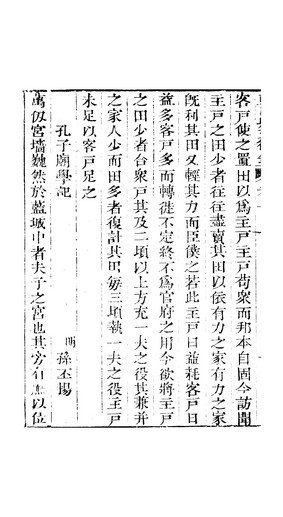 客戶使之置田以爲主戶主戶苟衆而邦本自固今訪聞
主戶之田少者往往盡賣其田以依有力之家有力之家
旣利其田又輕其力而臣僕之若此主戶日益耗客戶日
益多客戶多而轉徙不定終不爲官府之用今欲將主戶
之田少者合衆戶共及二頃以上方充一夫之役其兼并
之家人少而田多者復計其田每三頃執一夫之役主戶
未足以客戶足之
孔子廟學記
明 孫丕揚
萬仭宮墻巍然於藍城中者夫子之宮也其旁有以位